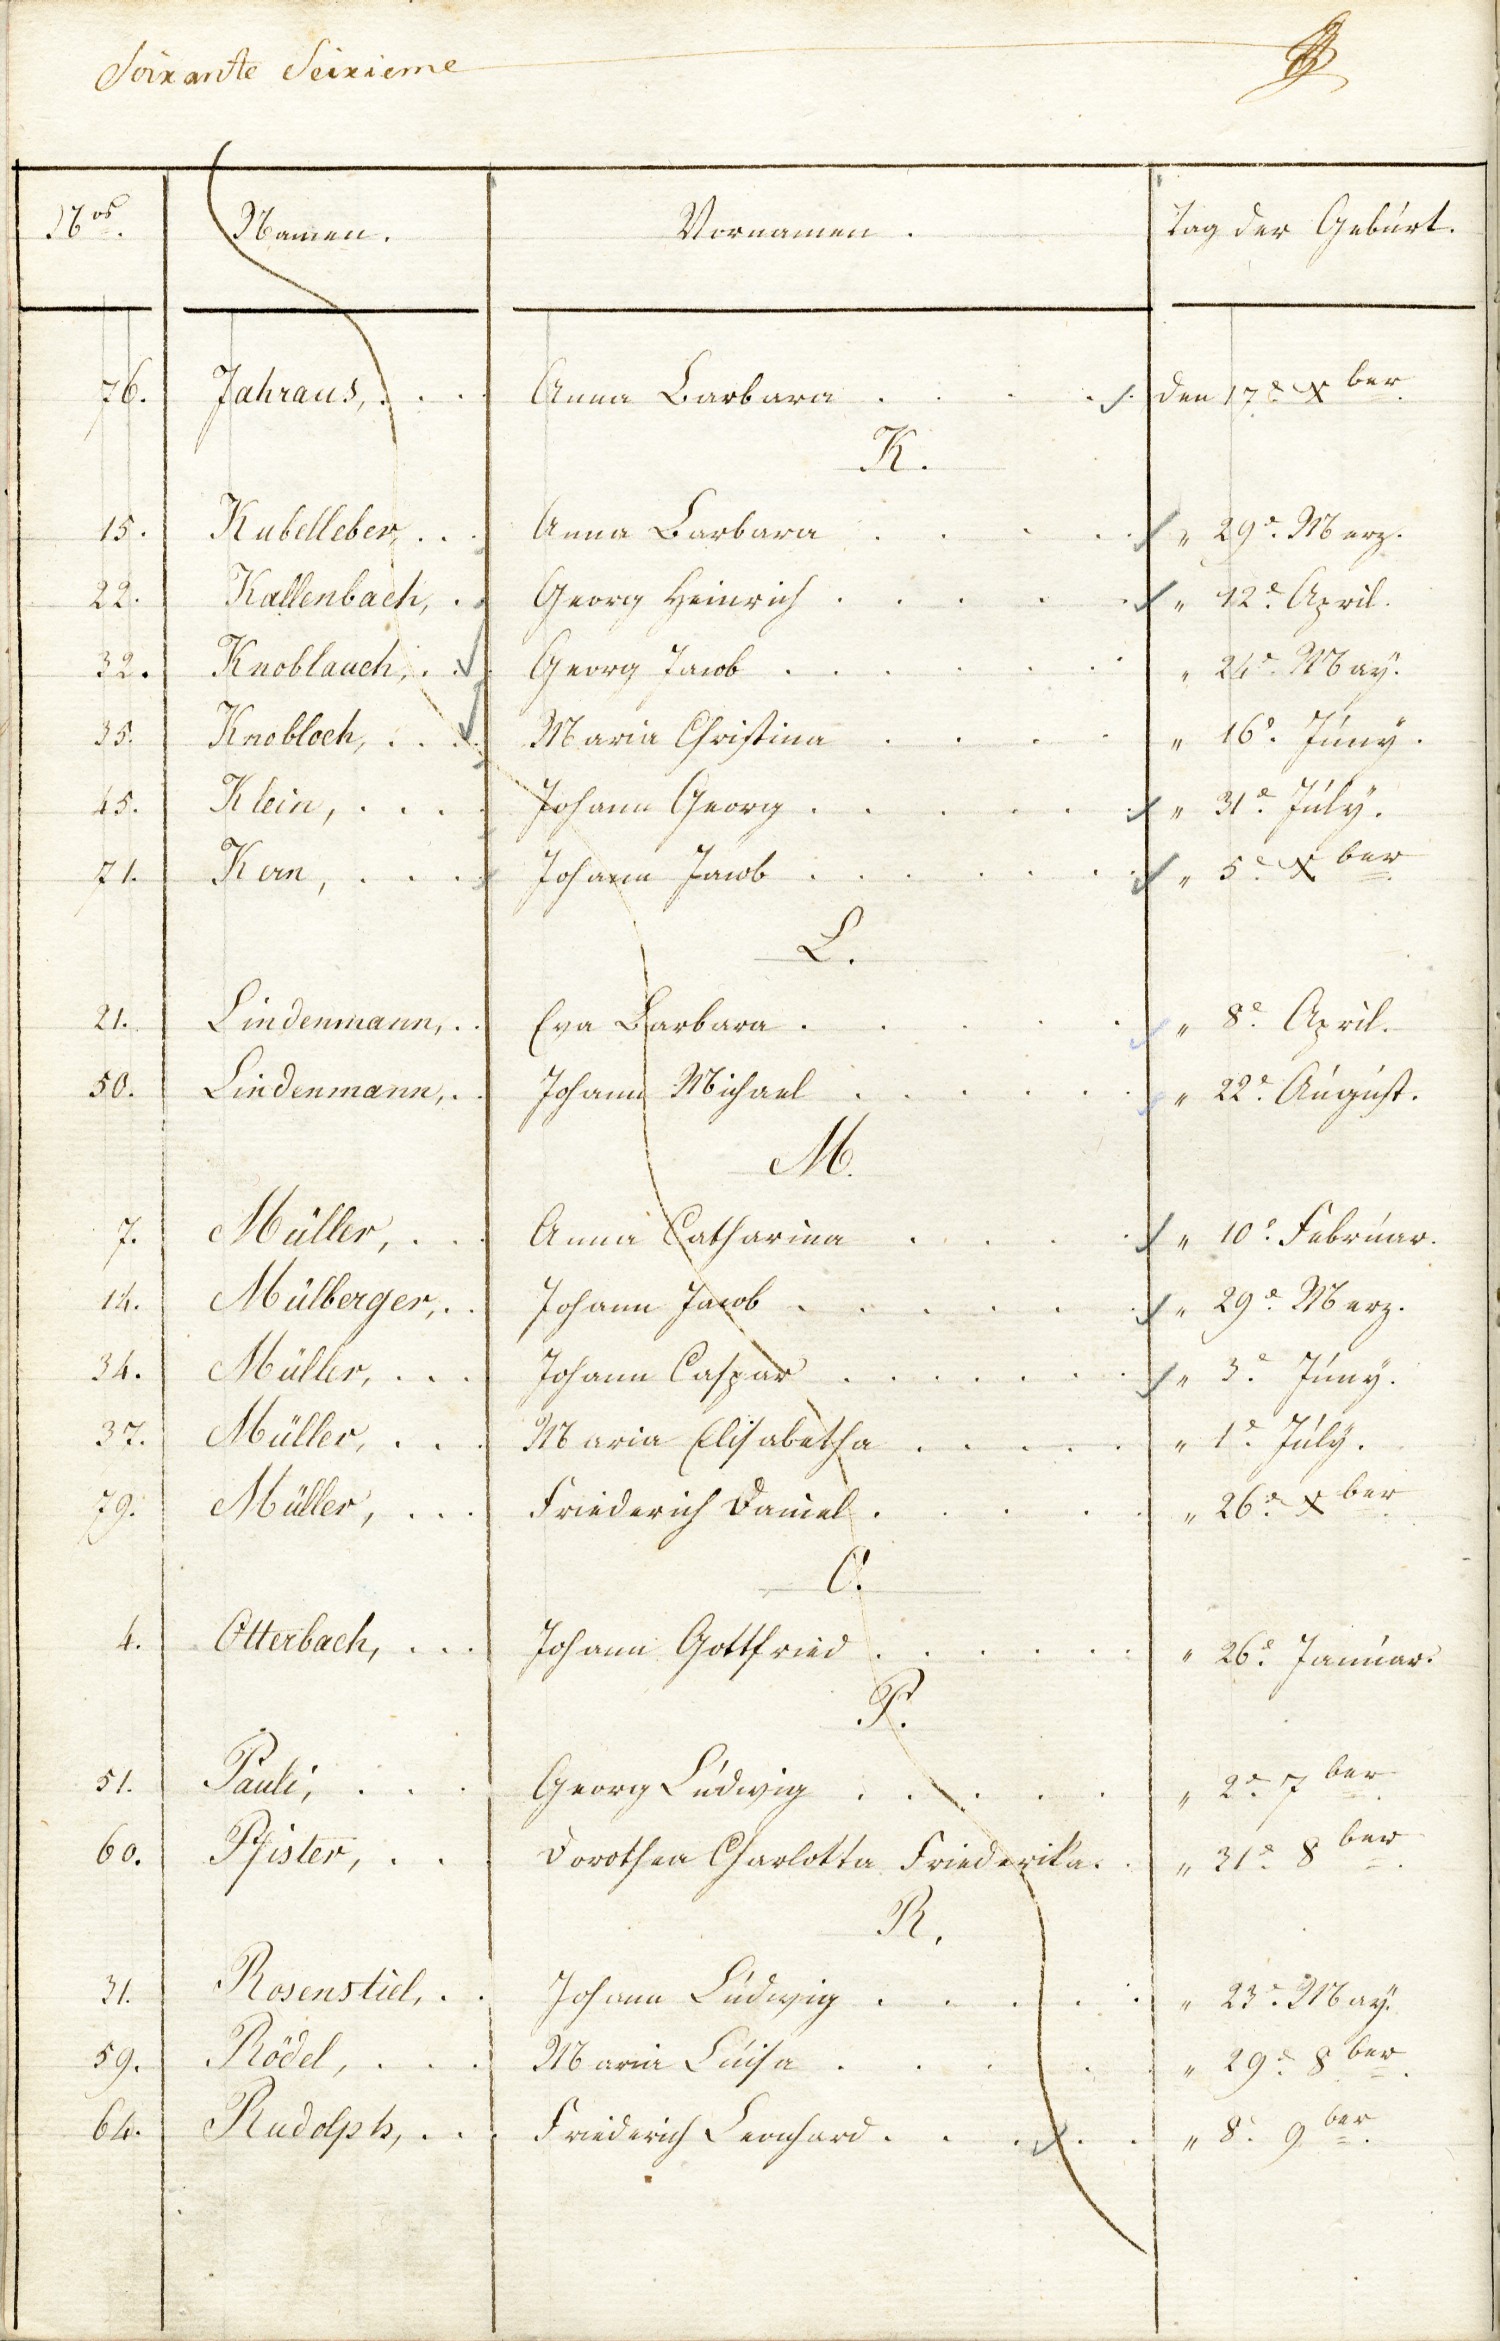 Soixante Seixieme
Nos. Namen. Vornamen. Tag der Geburt.
76. Jahraus, . . . Anna Barbara . . . . den 17e. Xber.
K.
15. Kubelleber, . . . Anna Barbara . . . . " 29e. Merz.
22. Kallenbach, . . Georg Heinrich . . . . . " 12e. April.
32. Knoblauch, . . . Georg Jacob . . . . . . . " 24e. May.
35. Knobloch, . . . Maria Christina . . . . " 16e. Juny.
45. Klein, . . . . Johann Georg . . . . . . " 31e. July.
71. Kern, . . . . Johann Jacob . . . . . . . " 5e. Xber.
L.
21. Lindenmann, . . Eva Barbara . . . . . . " 8e. April.
50. Lindenmann, . . Johann Michael . . . . . . " 22e. August.
M.
7. Müller, . . . Anna Catharina . . . . " 10e. Februar.
14. Mülberger, . . Johann Jacob . . . . . . " 29e. Merz.
34. Müller, . . . Johann Caspar . . . . . . . " 3e. Juny.
37. Müller, . . . Maria Elisabetha . . . . . " 1e. July.
79. Müller, . . . Friederich Daniel . . . . . " 26e. Xber.
O.
4. Otterbach, . . . Johann Gottfried . . . . . . " 26e. Januar.
P.
51. Pauli, . . . Georg Ludwig . . . . . " 2e. 7ber.
60. Pfister, . . . Dorothea Charlotta Friederika. . " 31e. 8ber.
R.
31. Rosenstiel, . . Johann Ludwig . . . . . " 23e. May.
59. Rödel, . . . Maria Luisa . . . . . " 29e. 8ber.
64. Rudolph, . . . Friederich Leonhard . . . . . " 8e. 9ber.